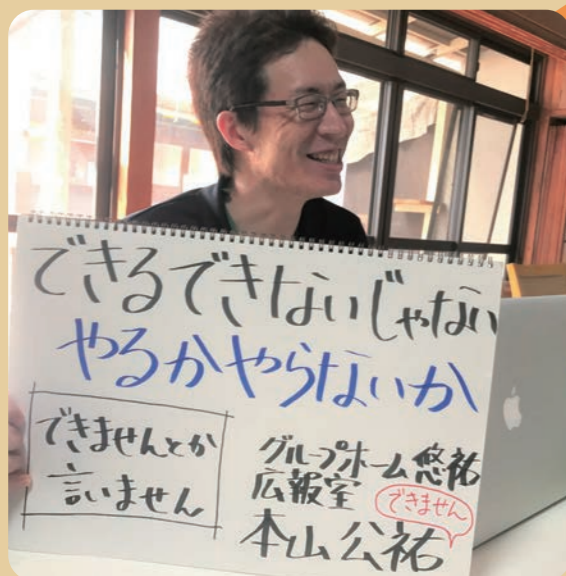 できるできないじゃない
やるかやらないか
できませんとか
言いません
グループホーム悠祐
広報室
できません
本山公祐